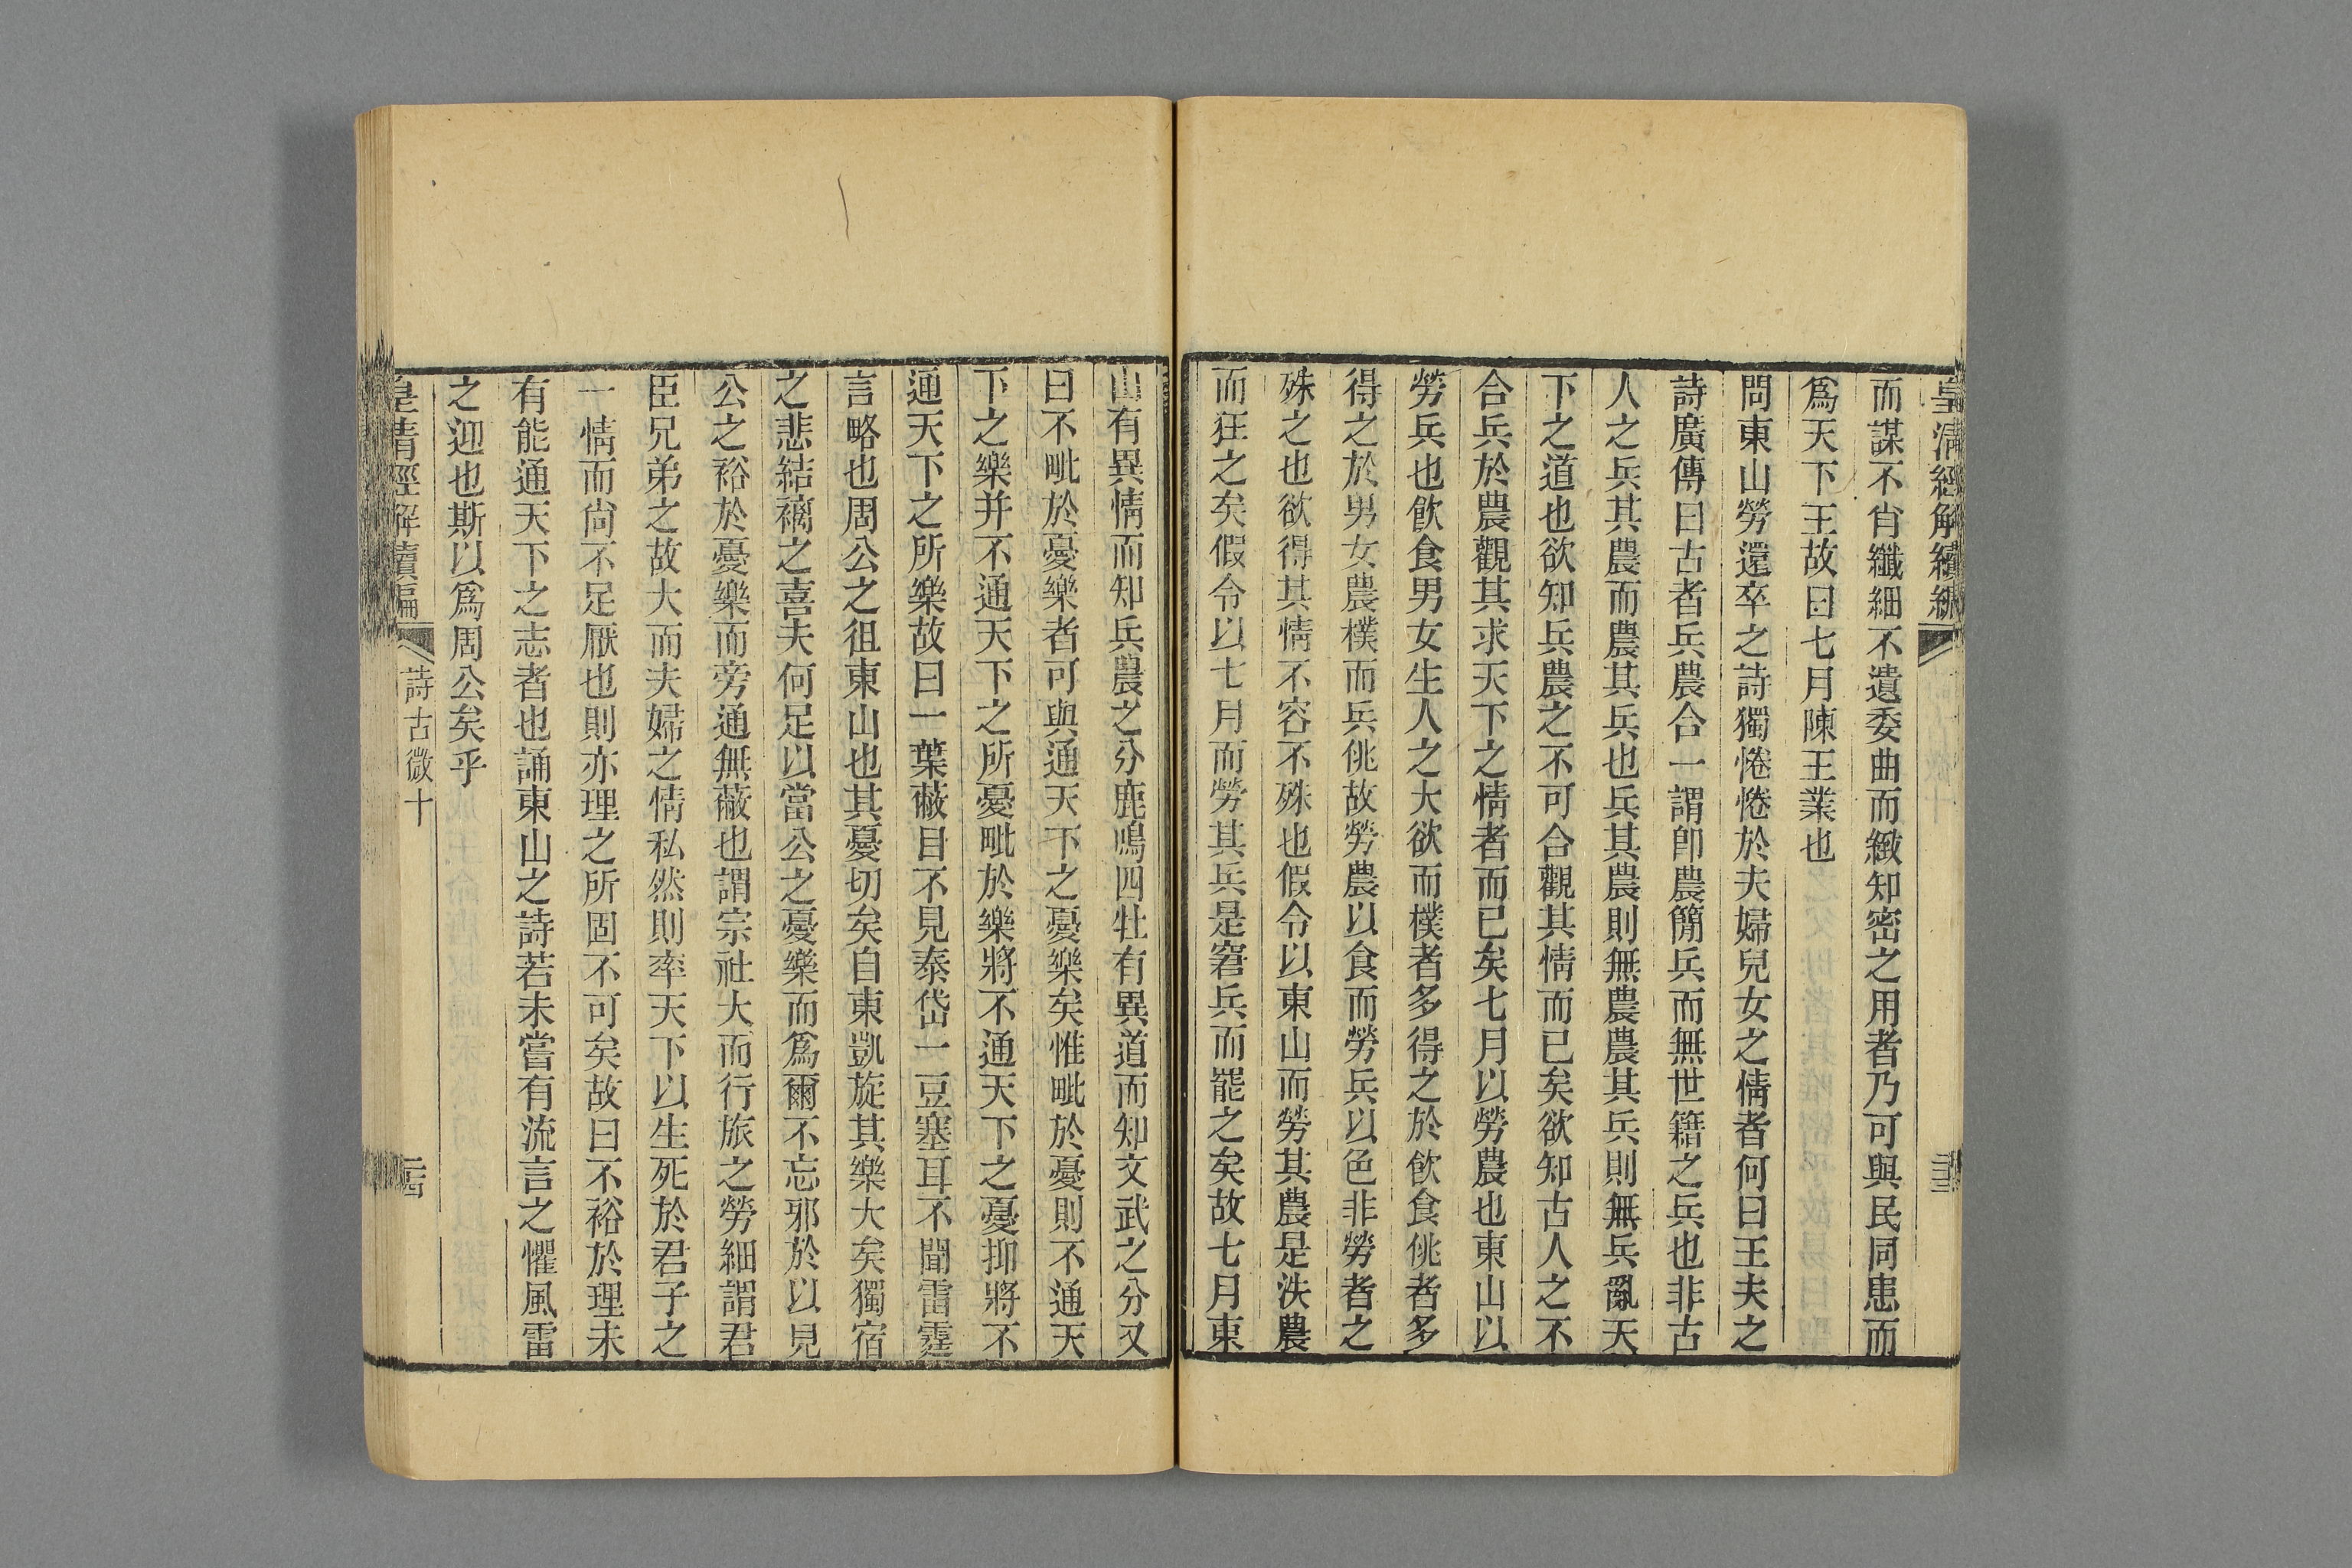 皇清經解續編
而謀不肖纖細不遺委曲而緻知密之用者乃可與民同患而
爲天下王故曰七月陳王業也
問東山勞還卒之詩獨惓惓於夫婦兒女之情者何曰王夫之
詩廣傳曰古者兵農合一謂卽農簡兵而無世籍之兵也非古
人之兵其農而農其兵也兵其農則無農農其兵則無兵亂天
下之道也欲知兵農之不可合觀其情而已矣欲知古人之不
合兵於農觀其求天下之情者而已矣七月以勞農也東山以
勞兵也飲食男女生人之大欲而樸者多得之於飲食佻者多
得之於男女農樸而兵佻故勞農以食而勞兵以色非勞者之
殊之也欲得其情不容不殊也假令以東山而勞其農是泆農
而狂之矣假令以七月而勞其兵是窘兵而罷之矣故七月東
山有異情而知兵農之分鹿鳴四牡有異道而知文武之分又
曰不毗於憂樂者可與通天下之憂樂矣惟毗於憂則不通天
下之樂并不通天下之所憂毗於樂將不通天下之憂抑將不
通天下之所樂故曰一葉蔽目不見泰岱一豆塞耳不聞雷霆
言略也周公之徂東山也其憂切矣自東凱旋其樂大矣獨宿
之悲結褵之喜夫何足以當公之憂樂而爲爾不忘邪於以見
公之裕於憂樂而旁通無蔽也謂宗社大而行旅之勞細謂君
臣兄弟之故大而夫婦之情私然則率天下以生死於君子之
一情而尙不足厭也則亦理之所固不可矣故曰不裕於理未
有能通天下之志者也誦東山之詩若未嘗有流言之懼風雷
之迎也斯以爲周公矣乎
皇清經解續編
詩古微十